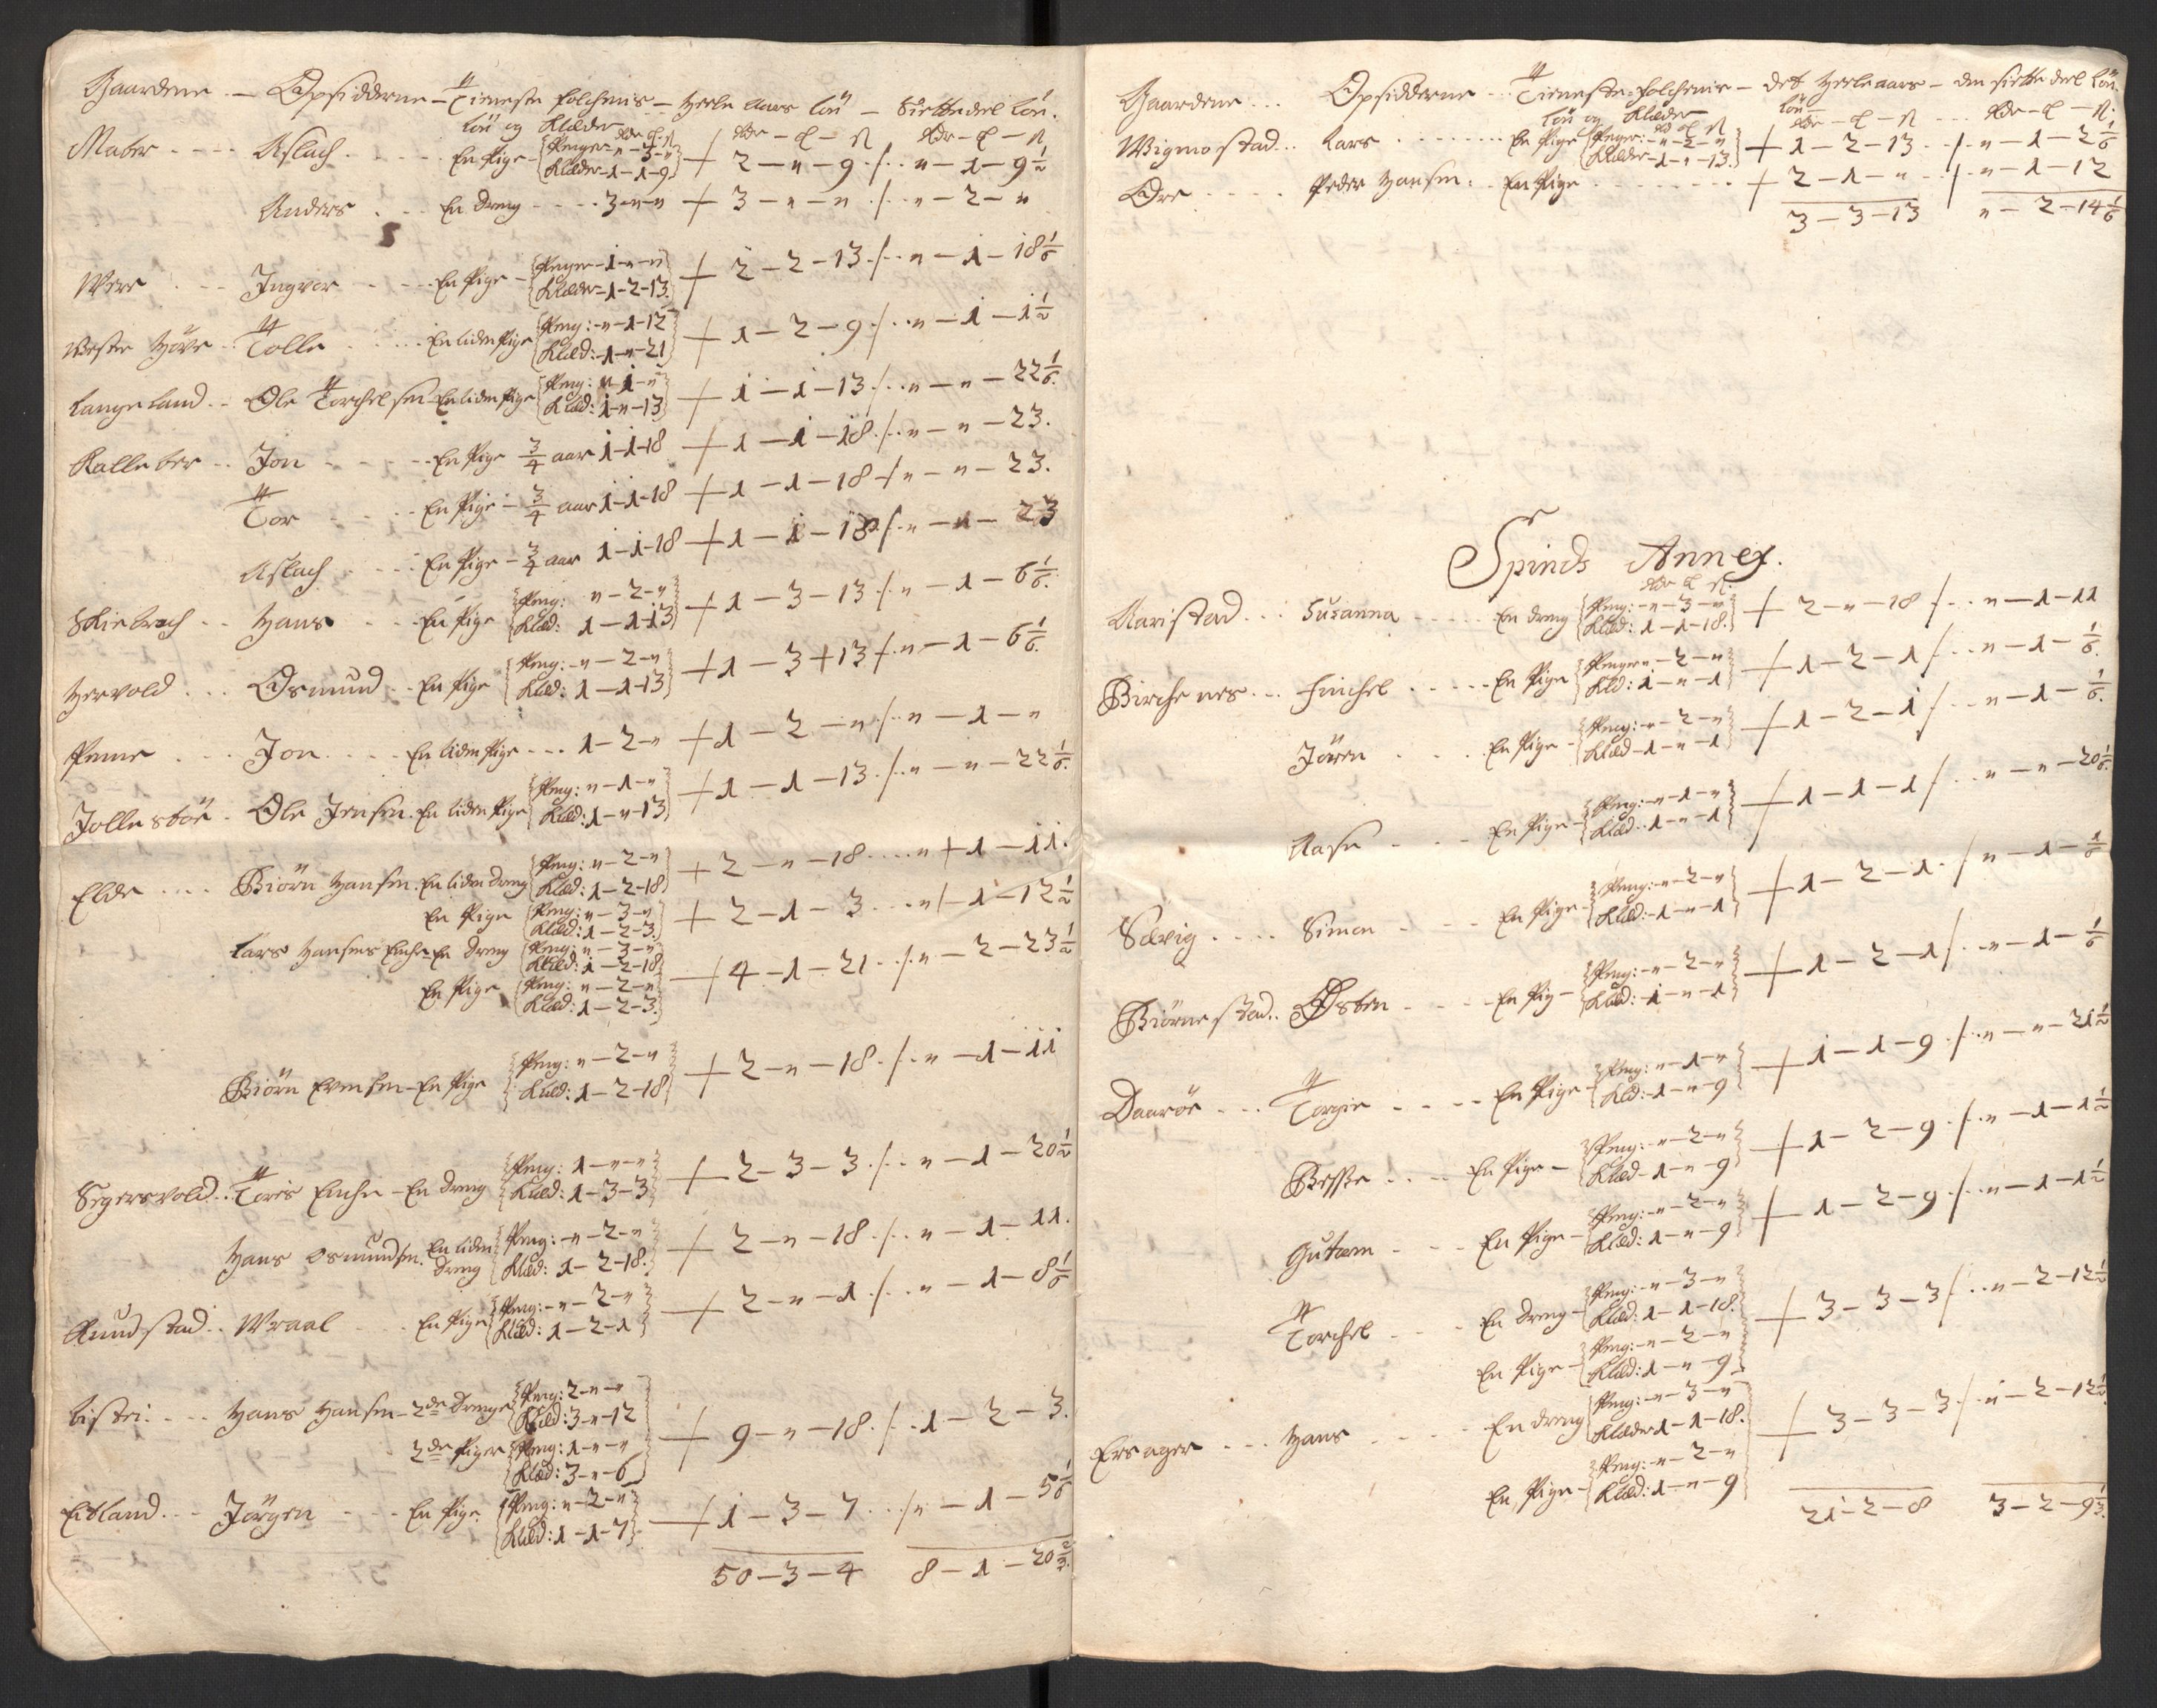 Gaardene - Opsidderne - Tieneste folchenis - Heele Aars løn - Siette deel løn.
Løn og Klæder
Rdr - ort - s   Rdr - ort - s
Aslach - En Pige - Penger - " - 3 - " + 2 - " - 9 / " - 1 - 9 1/2
Klæder - 1 - 1 - 9
Anders - En dreng - 3 - " - " + 3 - " - " / " - 2 - "
Were - Ingvor - En Pige - Penger - 1 - " - " + 2 - 2 - 13 / " - 1 - 18 1/6
Klæder - 1 - 2 - 13
Vestre Høye - Tolle - En liden Pige Peng: - " - 1 - 12 + 1 - 2 - 9 / " - 1 - 1 1/2
Klæd: - 1 - " - 21
Langeland - Ole Torchelsen - En liden Pige Peng: " - 1 - " + 1 - 1 - 13 / " - " - 22 1/6
Klæd: 1 - " - 13
Kalleber - Jon - En Pige 3/4 aar 1 - 1 - 18 + 1 - 1 - 18 / " - " - 23.
Tor - En Pige - 3/4 aar 1 - 1 - 18 + 1 - 1 - 18 / " - " - 23.
Aslach - En Pige - 3/4 aar 1 - 1 - 18 + 1 - 1 - 18 / " - " - 23
Hans - En Pige Peng: " - 2 - " + 1 - 3 - 13 / " - 1 - 6 1/6.
Klæd: 1 - 1 - 13
Hervold - Osmund - En Pige Peng: - " - 2 - " + 1 - 3 - 13 / " - 1 - 6 1/6.
Klæd: 1 - 1 - 13
Penne - Jon - En liden Pige - 1 - 2 - " + 1 - 2 - " / " - 1 - "
Jollestøe - Ole Jensen - En liden Pige Peng: " - 1 - " + 1 - 1 - 13 / " - " - 22 1/6.
Klæd: 1 - " - 13
Elde - Biørn Hansen - En liden dreng Peng: " - 2 - " + 2 - " - 18 - " - 1 - 11.
Klæd: 1 - 2 - 18
En Pige Peng: " - 3 - " + 2 - 1 - 3 - " - 1 - 12 1/2
Klæd: 1 - 2 - 3.
Lars Hansens Enche - En Dreng Peng: " - 3 - " + 4 - 1 - 21 / " - 2 - 23 1/2
Klæd: 1 - 2 - 18
En Pige Peng: " - 2 - "
Klæd: 1 - 2 - 3
Biørn Evensen - En Pige Peng: " - 2 - " + 2 - " - 18 / " - 1 - 11
Klæd: 1 - 2 - 18
Segersvold - Toris Enche - En dreng Peng: 1 - " - " + 2 - 3 - 3 / " - 1 - 20 1/2
Klæd: 1 - 3 - 3
Hans Osmundsen - En liden Dreng Peng: - " - 2 - " + 2 - " - 18 / " - 1 - 11.
Klæd: 1 - 2 - 18.
Rundstad - Wraal - En Pige Peng: - " - 2 - " + 2 - " - 1 / " - 1 - 8 1/6
Klæd: 1 - 2 - 1
Listei - Hans Hansen - 2de Drenge Peng: 2 - " - " + 9 - " - 18 / 1 - 2 - 3.
Klæd: 3 - " - 12
2de Piger Peng: 1 - " - "
Klæd: 3 - " - 6
Eitland - Jørgen - En Pige Peng: " - 2 - " + 1 - 3 - 7 / " - 1 - 5 1/6
Klæd: 1 - 1 - 7
50 - 3 - 4   8 - 1 - 20 2/3.
Gaardene - Opsidderne - Tieneste-folchenis - det Heele aars - den siette deel løn
Løn og Klæder   løn
Rdr - ort - s   Rdr - ort - s.
Wigmostad - Lars - En Pige Penger: - " - 2 - " + 1 - 2 - 13 / " - 1 - 2 1/6
Klæder - 1 - " - 13.
Ore - Peder Hansen - En Pige + 2 - 1 - " / " - 1 - 12
3 - 3 - 13   " - 2 - 14 1/6
Spinds Annex.
Rdr ort s.
Aaristad - Susanna - En dreng Peng: - " - 3 - " + 2 - " - 18 / " - 1 - 11
Klæd: 1 - 1 - 18.
Birchenes - Finchel - En Pige Penger " - 2 - " + 1 - 2 - 1 / " - 1 - 1/6.
Kld: 1 - " - 1
Jøren - En Pige Peng: - " - 2 - " + 1 - 2 - 1 / " - 1 - 1/6.
Klæd - 1 - " - 1
Aase - En Pige Peng: - " - 1 - " + 1 - 1 - 1 / " - " - 20 1/6.
Klæd: 1 - " - 1
Sævig - Simon - En Pige Peng: - " - 2 - " + 1 - 2 - 1 / " - 1 - 1/6
Klæd: - 1 - " - 1
Biørnestad - Østen - En Pig - Peng: - " - 2 - " + 1 - 2 - 1 / " - 1 - 1/6
Klæd: 1 - " - 1
Daarøe - Torgie - En Pige Peng: " - 1 - " + 1 - 1 - 9 / " - " - 21 1/2
Kld: - 1 - " - 9
En Pige - Peng: - " - 2 - " + 1 - 2 - 9 / " - 1 - 1 1/2
Klæd - 1 - " - 9
Gutorm - En Pige - Peng: - " - 2 - " + 1 - 2 - 9 / " - 1 - 1 1/2
Klæd: 1 - " - 9
Torchel - En dreng - Peng: - " - 3 - " + 3 - 3 - 3 / " - 2 - 12 1/2
Klæd: 1 - 1 - 18.
En Pige - Peng: - " - 2 - "
Klæd: 1 - " - 9
Ersager - Hans - En dreng Peng: - " - 3 - " + 3 - 3 - 3 / " - 2 - 12 1/2.
Klæder 1 - 1 - 18.
En Pige - Peng: - " - 2 - "
Klæd: 1 - " - 9
21 - 2 - 8   3 - 2 - 9 1/3.